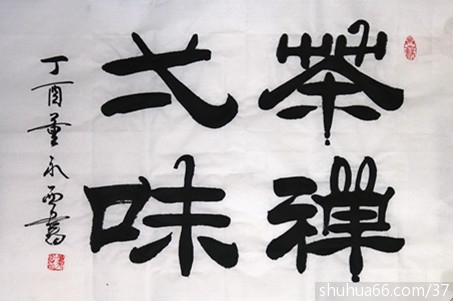 茶禅
弌味
丁酉董永西書
shuhua66.com/37